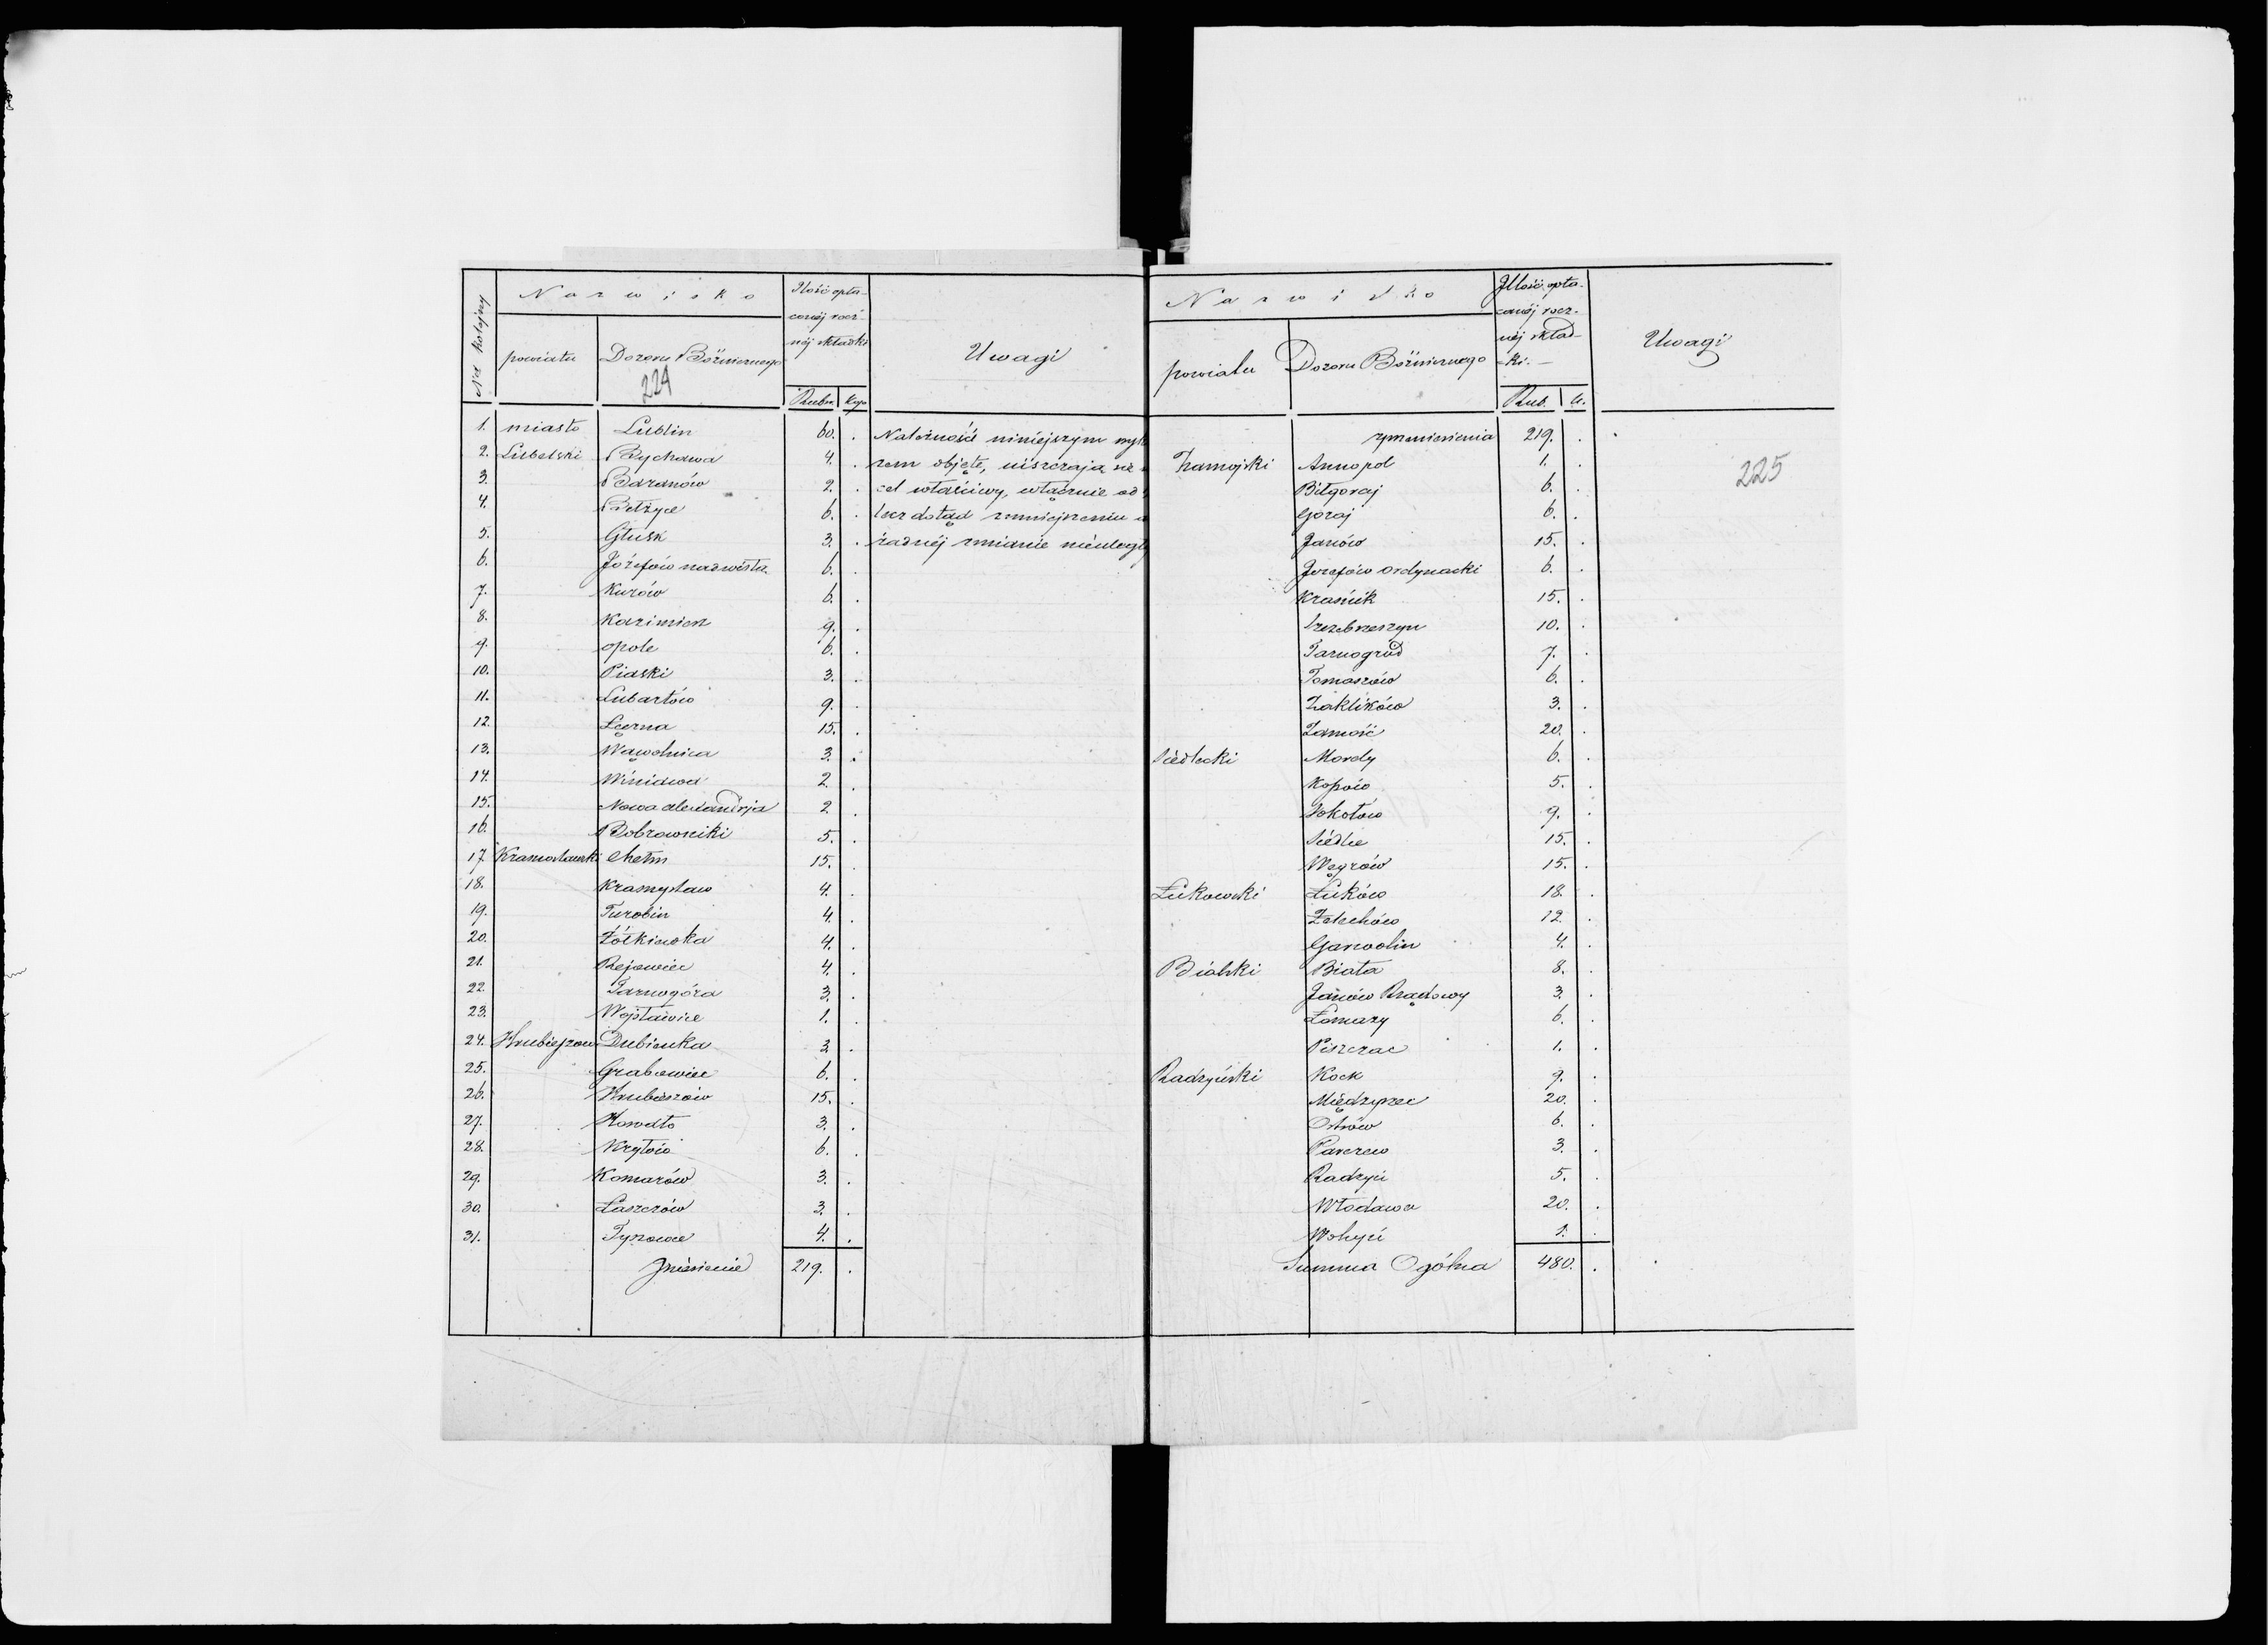 Nazwisko
Ilość opła-
conéj rocz-
néj składki
Uwagi
Nr kolejny
powiatu
Dozoru Bóżnicznego
224
Rubr. kop
1. miasto Lublin 60. . Należność niniejszym wyk
2. Lubelski Bychawa 4. . zem objęte, uiszczają się
3. Baranów 2. . cel właściwy, włącznie od
4. Bełżyce 6. . lecz dotąd zmniejszeniu a
5. Głusk 3. . żadnéj zmianie nieuległy
6. Józefów nadwiśla. 6. .
7. Kurów 6. .
8. Kazimierz 9. .
9. opole 6. .
10. Piaski 3. .
11. Lubartów 9. .
12. Łęczna 15. .
13. Wąwolnica 3. .
14. Winiawa 2. .
15. Nowa alexandrja 2. .
16. Bobrowniki 5. .
17. Krasnostawski Chełm 15. .
18. Krasnystaw 4. .
19. Turobin 4. .
20. Żółkiewka 4. .
21. Rejowiec 4. .
22. Tarnogóra 3. .
23. Wojsławice 1. .
24. Hrubieszow Dubienka 3. .
25. Grabowiec 6. .
26. Hrubieszów 15. .
27. Horodło 3. .
28. Kryłów 6. .
29. Komarów 3. .
30. Łaszczów 3. .
31. Tyszowce 4. .
Zniesienie 219. .
Nazwisko
Jlość opła-
conéj rocz-
néj skład-
ki.
Uwagi
powiatu
Dozoru Bóżnicznego
Rub. k.
zprzeniesienia 219. .
225
Zamojski Annopol 1. .
Biłgoraj 6. .
Goraj 6. .
Janów 15. .
Józefów Ordynacki 6. .
Kraśnik 15. .
Szczebrzeszyn 10. .
Tarnogród 7. .
Tomaszów 6. .
Zaklików 3. .
Zamość 20. .
Siedlecki Mordy 6. .
Kossów 5. .
Sokołów 9. .
Siedlce 15. .
Węgrów 15. .
Łukowski Łuków 18. .
Żelechów 12. .
Garwolin 4. .
Bialski Biała 8. .
Janów Rządowy 3. .
Łomazy 6. .
Piszczac 1. .
Radzyński Kock 9. .
Międzyrzec 20. .
Ostrów 6. .
Parczew 3. .
Radzyń 5. .
Włodawa 20. .
Wohyń 1. .
Summa Ogólna 480. .